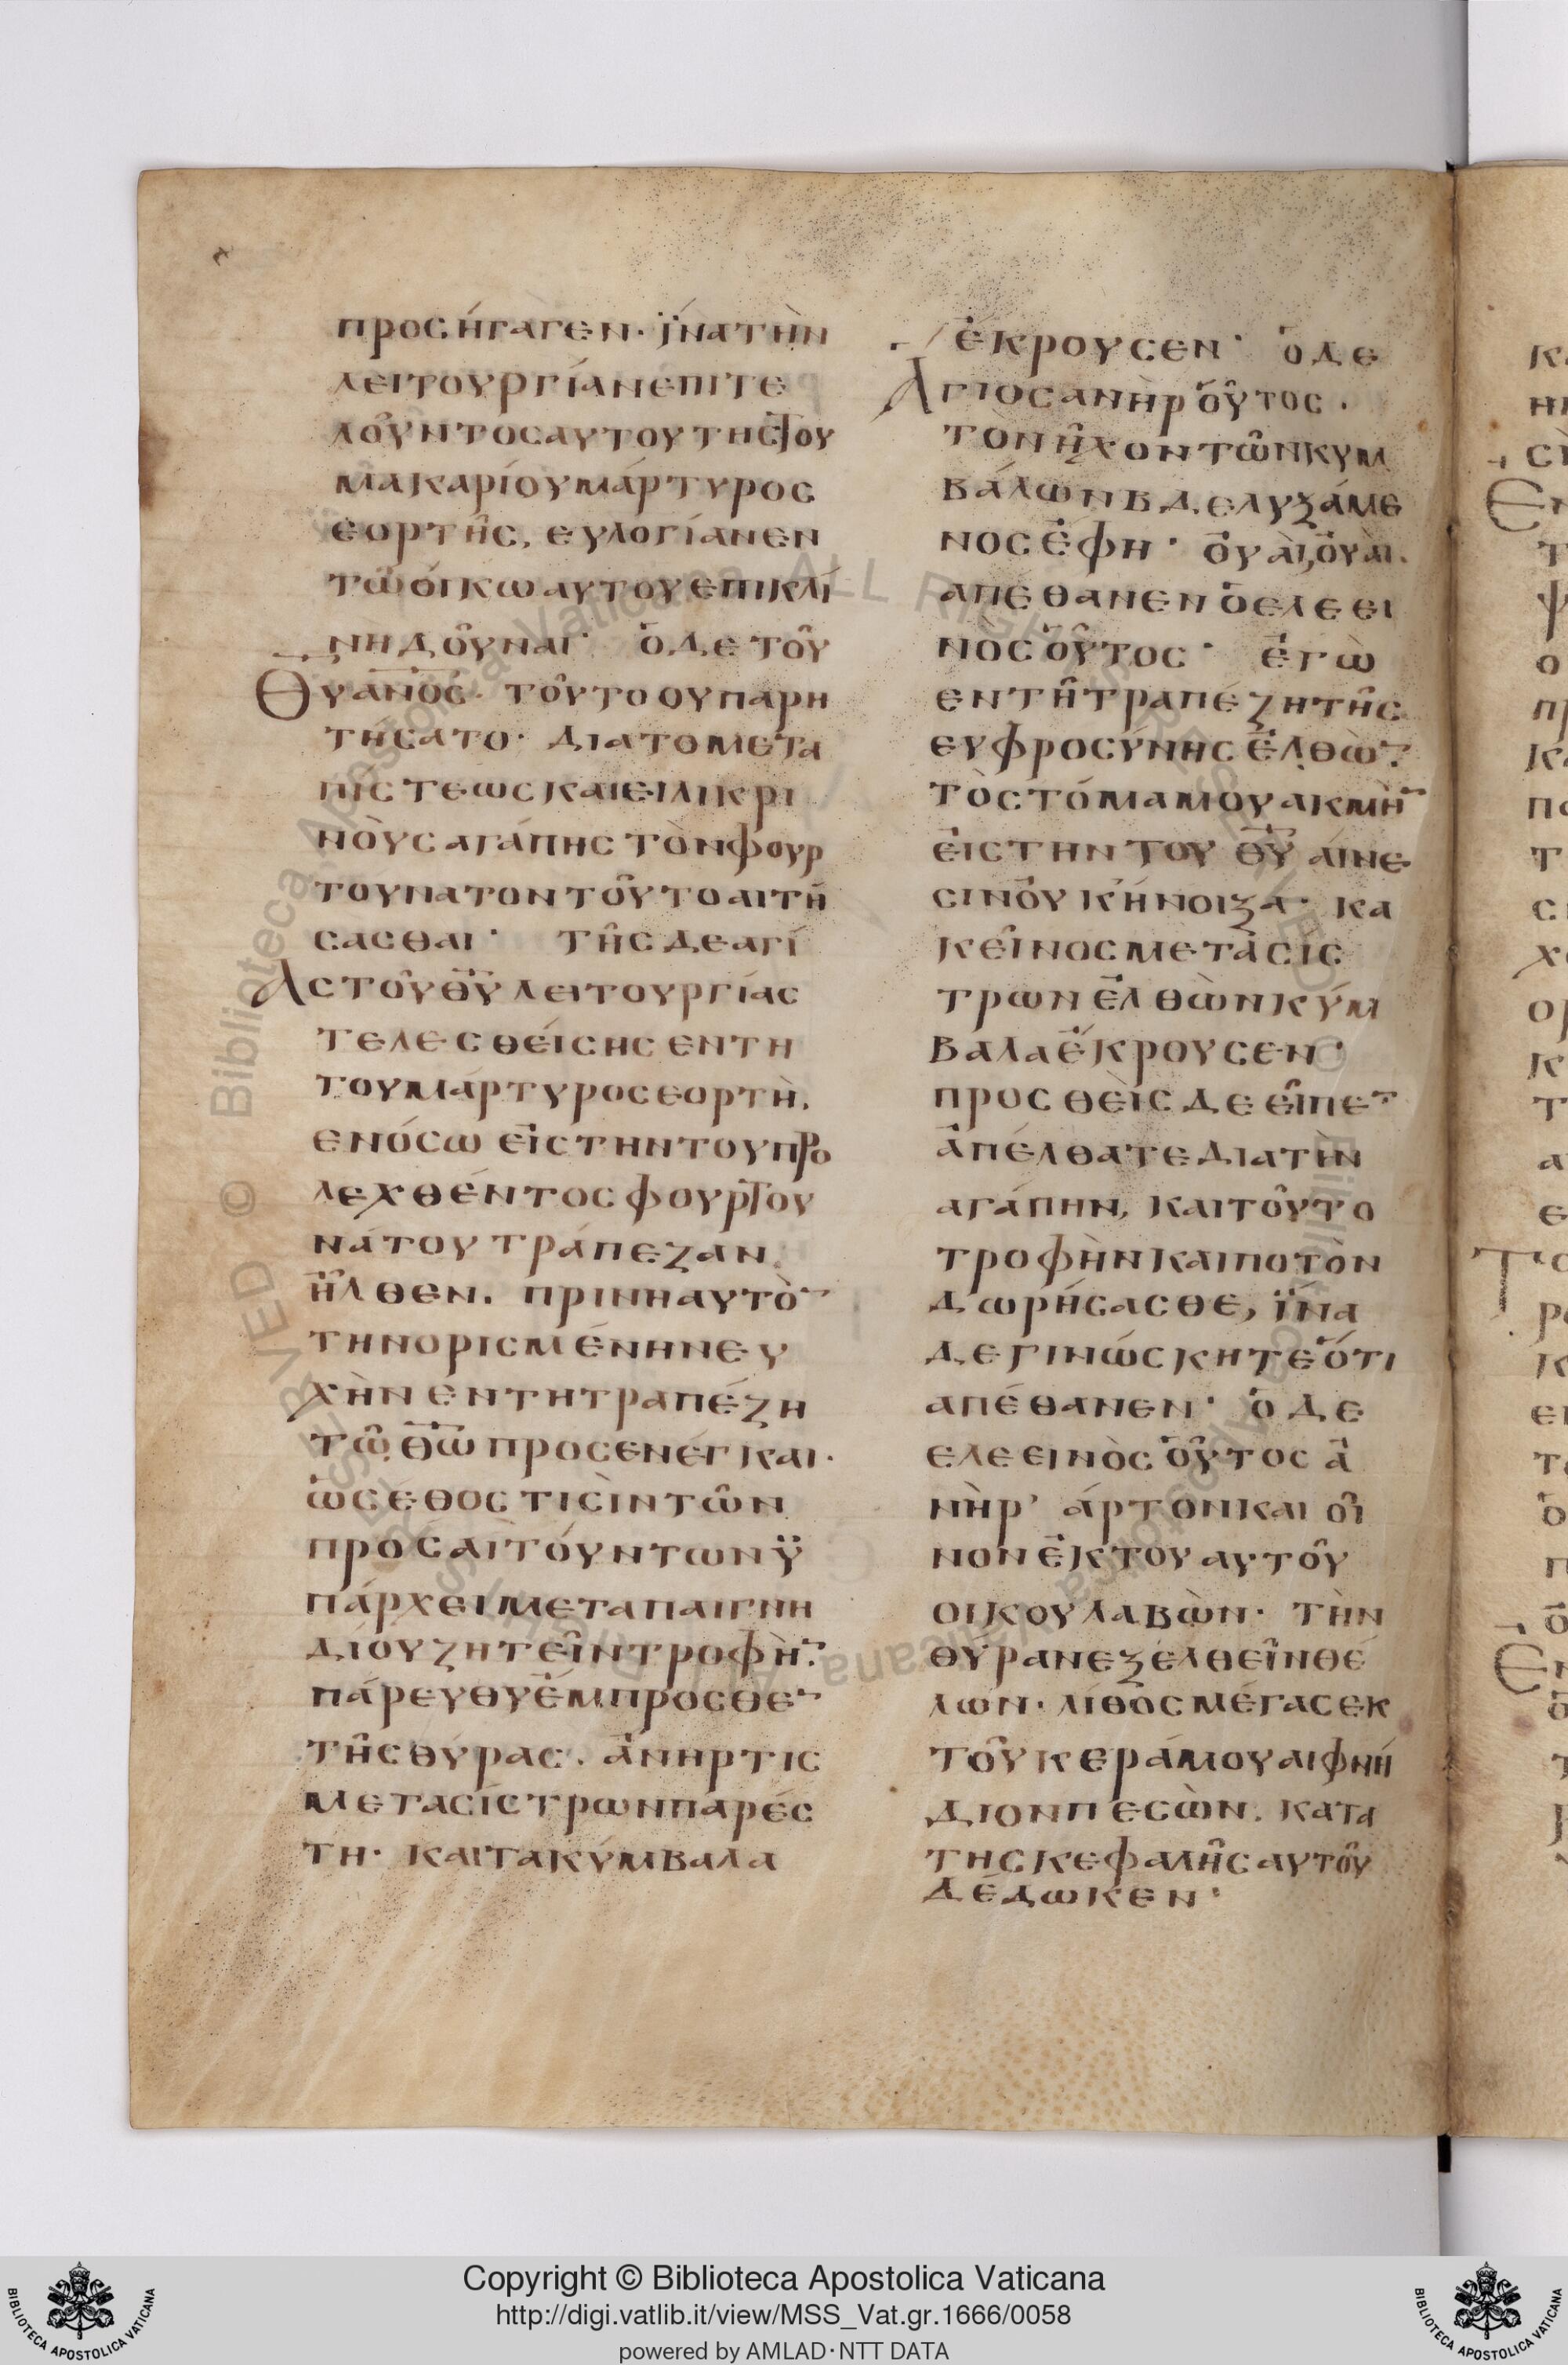 προσήγαγεν· ΐνατὴν
λειτουργίανεπιτε
λοῦντοσαυτουτησ του
μακαρίουμάρτυρος
ἑορτῆς, ευλογίανεν
τῶόικωαυτουεπικλί
νηδοῦναι· ὁδετοῦ
Θυανος· τοῦτοουπαρη
τήσατο· διατομετα
πίστεωσκαιειλικρι
νὸυσαγάπηςτὸνφουρ
τουνατοντοῦτοαιτή
σασθαι· τῆσδεαγί
Αστοῦθῦλειτουργίας
τελεσθείσησεντη
τουμάρτυροσεορτὴ.
ενόσωεἰστηντουπρο
λεχθέντοσφουρτου
νάτουτράπεζαν
ῆλθεν. πρινηαυτὸ
τηνορισμένηνευ
χὴνεντητραπέζη
τῶθῶπροσενέγκαι·
ὡσέθοστισὶντῶν
προσαιτόυντωνϋ
πάρχειμεταπαιγνη
δίουζητεῖντροφὴ
πάρευθυἔμπροσθε
τῆσθύρας. ἀνηρτις
μετασίστρωνπαρέσ
τη· καιτακύμβαλα
ἔκρουσεν· ὁδε
Αγιοσανὴροὗτος.
τὸνῆχοντῶνκυμ
βάλωνβδελυξάμε
νοσἔφη· οὐὰι,οὐὰι.
απέθανενὁελεει
νὸσοὗτος· ἐγὼ
εντῆτραπέζητῆς
ευφροσύνησἐλθὼ
τὸστόμαμουακμὴ
εἰστηντουθῦάινε
σινοὐκήνοιξα· κα
κεῖνοσμετασίσ
τρωνἐλθὼνκύμ
βαλαἔκρουσεν·
προσθεὶσδεεῖπε
ἀπέλθατεδιατὴν
αγάπην, καιτοῦτο
τροφὴνκαιποτὸν
δωρήσασθε, ΐνα
δεγινώσκητεὅτι
απέθανεν· ὁδε
ελεεινὸσοὗτοςἀ
νὴρ’ άρτονκαιοἶ
νονἐκτουαυτοῦ
οικουλαβὼν· τὴν
θύρανεξελθεῖνθέ
λων· λίθοσμέγασεκ
τοῦκεράμουαιφνή
διονπεσὼν. κατα
τησκεφαλῆσαυτοῦ
δέδωκεν·
Copyright © Biblioteca Apostolica Vaticana
http://digi.vatlib.it/view/MSS_Vat.gr.1666/0058
powered by AMLAD·NTT DATA